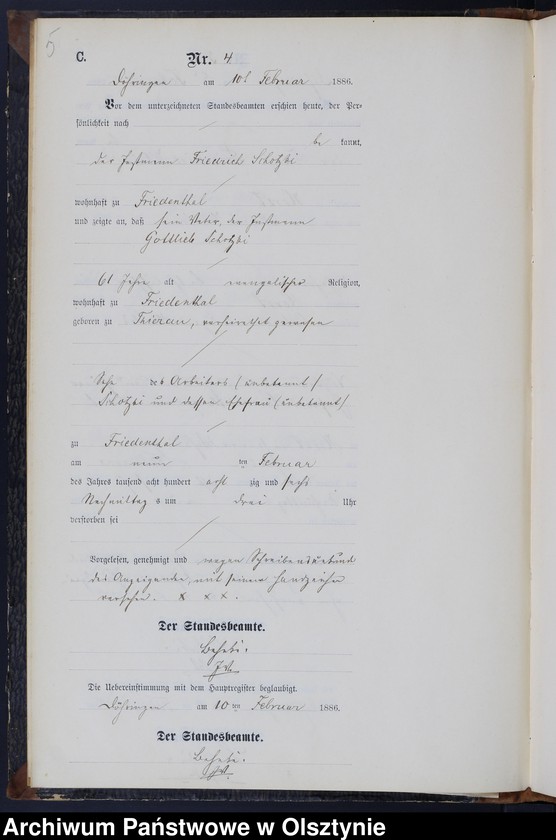 5
C.
Nr. 4
Döhringen am 10t Februar 1886.
Vor dem unterzeichneten Standesbeamten erschien heute, der Per-
sönlichkeit nach
be kannt,
der Instmann Friedrich Schotzki
wohnhaft zu Friedenthal
und zeigte an, daß sein Vater, der Instmann
Gottlieb Schotzki
61 Jahre alt evangelischer Religion,
wohnhaft zu Friedenthal
geboren zu Thierau, verheirathet gewesen
Sohn des Arbeiters (unbekannt)
Schotzki und dessen Ehefrau (unbekannt)
zu Friedenthal
am neun ten Februar
des Jahres tausend acht hundert acht zig und sechs
Nachmittag s um drei Uhr
verstorben sei
Vorgelesen, genehmigt und wegen Schreibensunkund
des Anzeigenden, mit seinem Handzeichen
versehen. x x x.
Der Standesbeamte.
Die Uebereinstimmung mit dem Hauptregister beglaubigt.
Döhringen am 10 ten Februar 1886.
Der Standesbeamte.
Archiwum Państwowe w Olsztynie